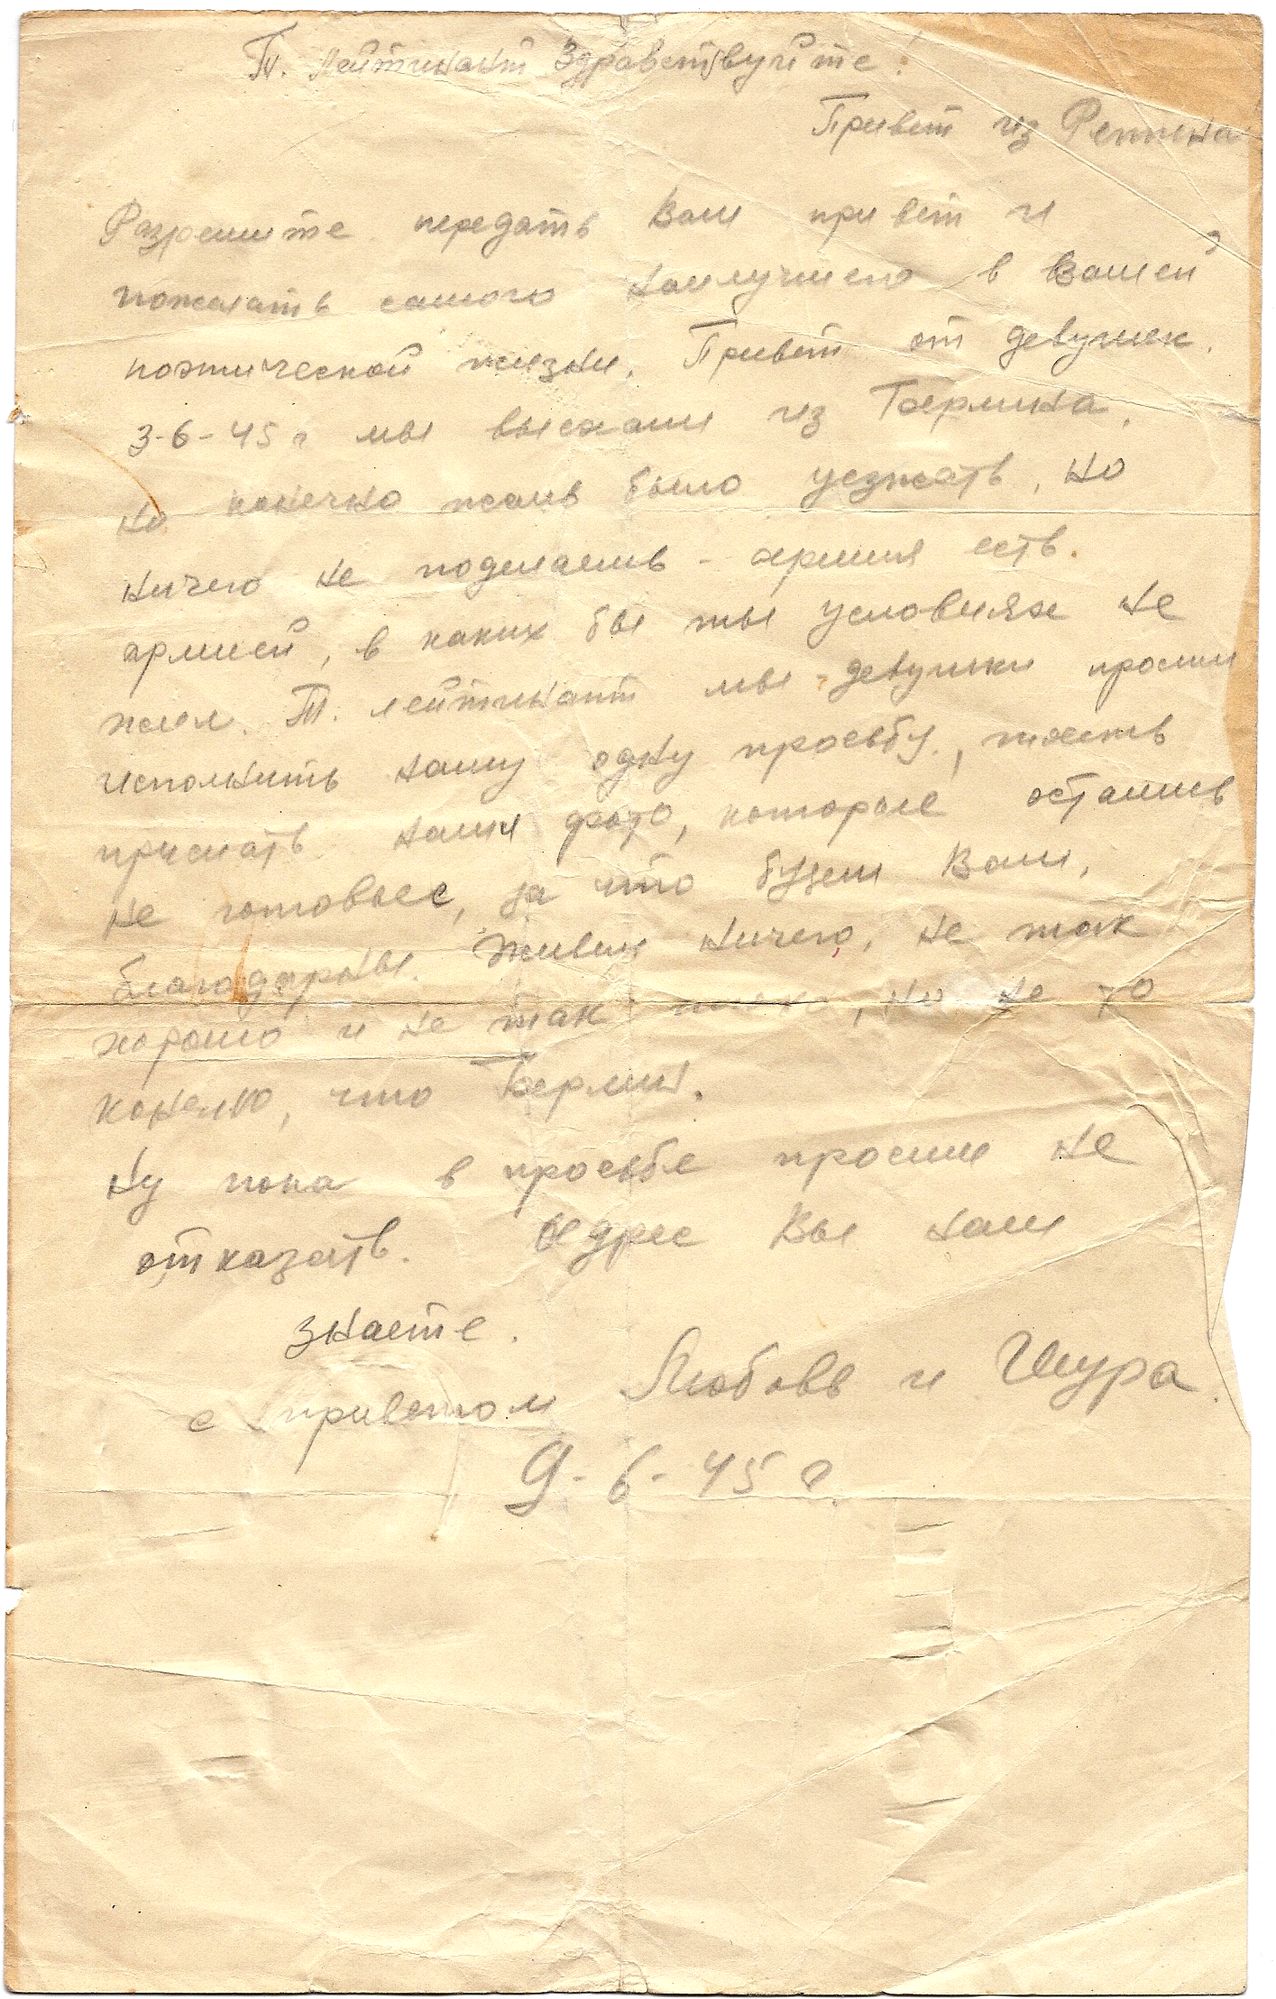 Т. Лейтинант Здравствуйте!
Привет из Репина
Разрешите передать Вам привет и
пожелать самого наилучшего в Вашей
поэтической жизни. Привет от девушек.
3-6-45 г мы выехали из Берлина.
Но конечно жаль было уезжать, но
ничего не поделаешь - армия есть
армией, в каких бы ты условиях не
жил. Т. лейтинант мы девушки просим
исполнить нашу одну просьбу,
прислать наши фото, которые остались
не готовые, за что будем Вам,
благодарны. Живем ничего, не так
хорошо и не так плохо, но не то
конечно, что Берлин.
Ну пока в просьбе просим не
отказать. Адрес Вы наш
знаете.
с приветом Любовь и Шура.
9-6-45 г.